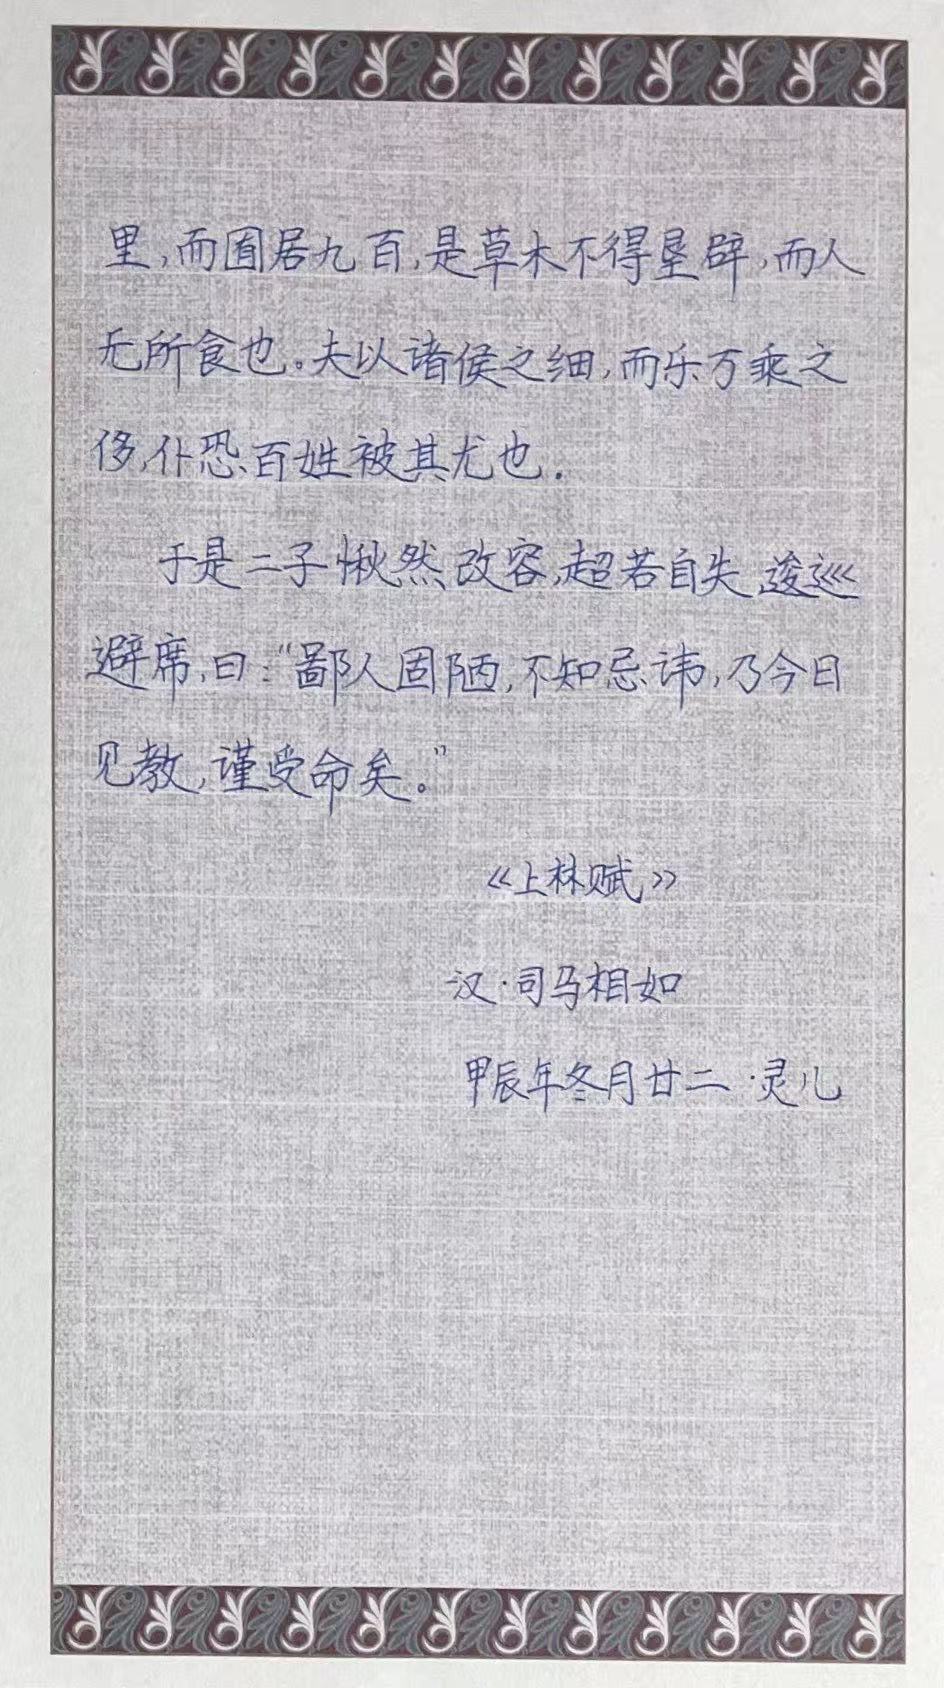 里,而囿居九百,是草木不得垦辟,而人
无所食也。夫以诸侯之细,而乐万乘之
侈,仆恐百姓被其尤也.
于是二子愀然改容,超若自失,逡巡
避席,曰:“鄙人固陋,不知忌讳,乃今日
见教,谨受命矣。”
《上林赋》
汉·司马相如
甲辰年冬月廿二·灵儿